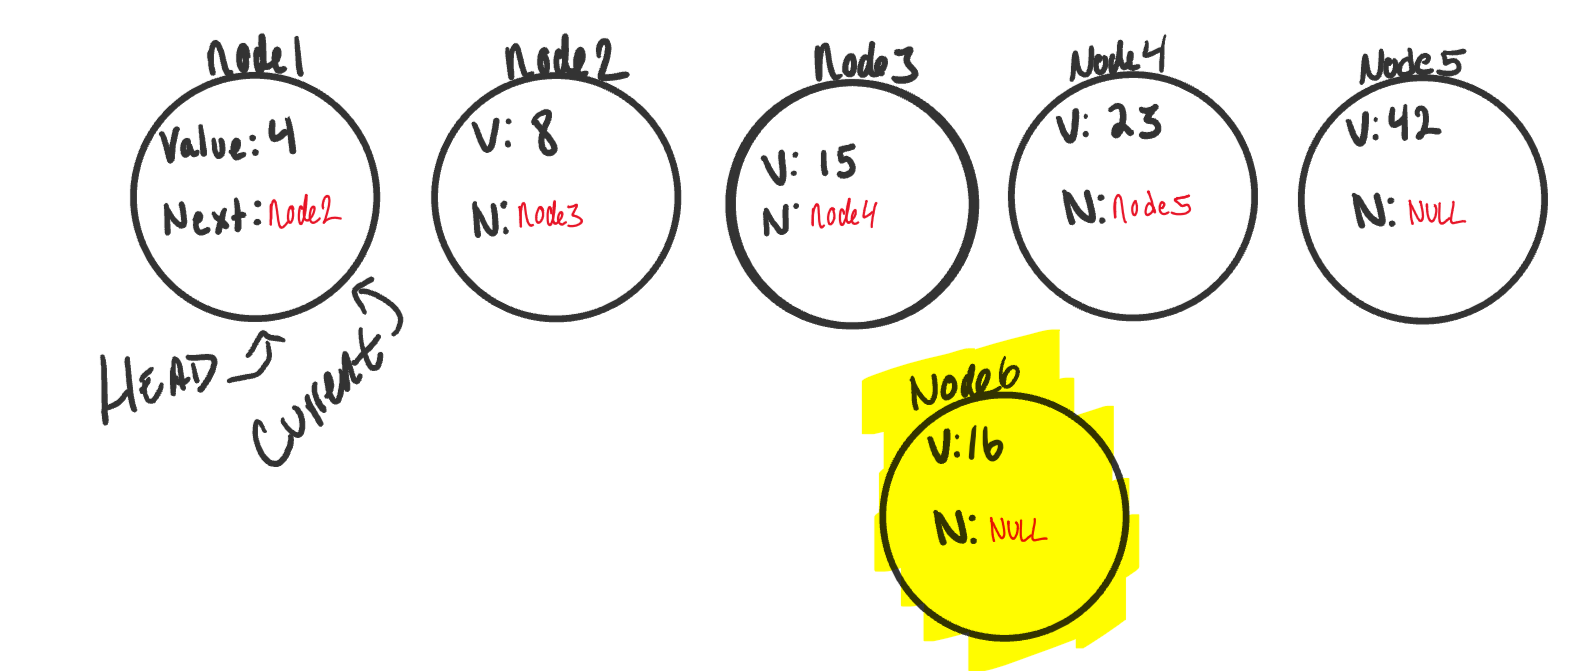 node1
Value: 4
Next: node2
node2
V: 8
N: node3
node3
V: 15
N: node4
Node4
V: 23
N: node5
Node5
V: 42
N: NULL
HEAD
Current
Node6
V:16
N: NULL